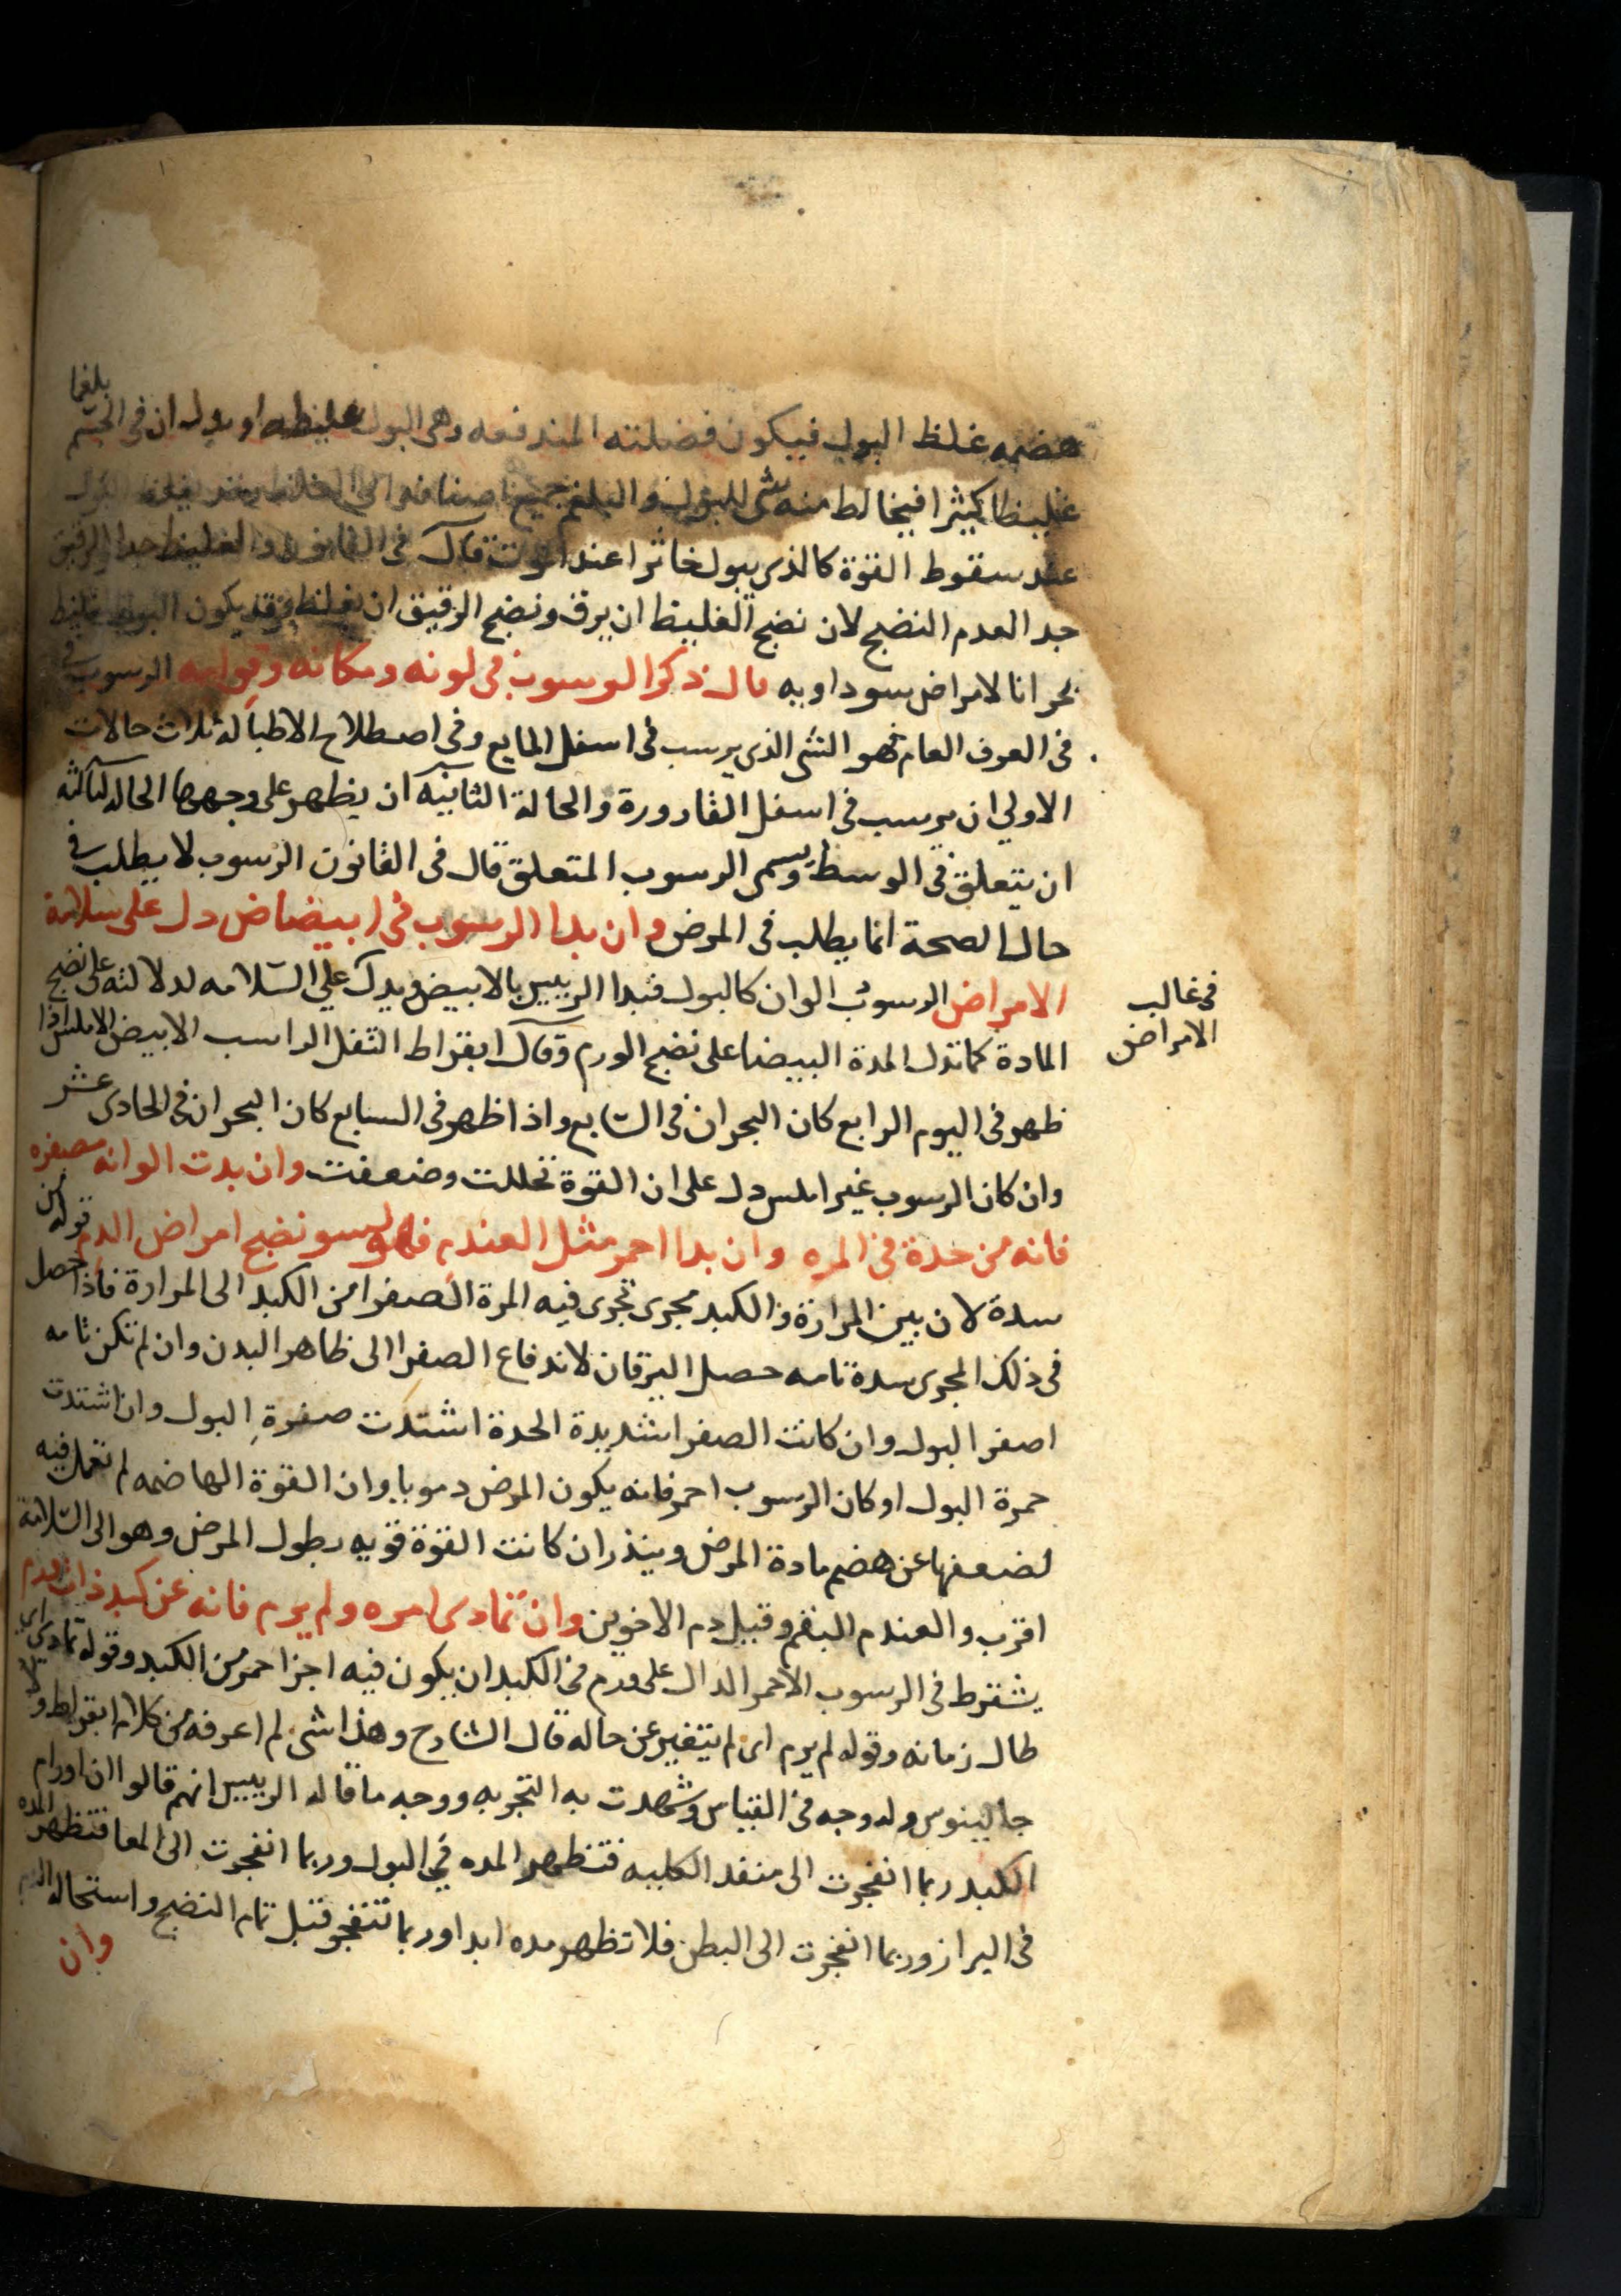 هضمه غلظ البول فيكون فضلته المندفعه وهى البول غليظه او يدل ان فى الجسم بلغما
غليظا كثيرا فيخالط منه شى للبول والبلغم جميع اصنافه
عند سقوط القوة كالذى يبول خاثرا عند الموت قال فى القانون والغليظ جدا والرقيق
جدا لعدم النضج لان نضج الغليظ ان يرق ونضج الرقيق ان يغلظ وقد يكون البول غليظ
بحرانا لامراض سوداويه قال ذكر الرسوب فى لونه ومكانه وقوامه الرسوب فى
فى العرف العام فهو الشى الذى يرسب فى اسفل المايع وفى اصطلاح الاطبا له ثلاث حالات
الاولى ان يرسب فى اسفل القارورة والحالة الثانيه ان يظهر على وجهها الحاله الثالثه
ان يتعلق فى الوسط ويسمى الرسوب المتعلق قال فى القانون الرسوب لا يطلب فى
حال الصحة انما يطلب فى المرض وان بدا الرسوب فى ابيضاض دل على سلامة
الامراض الرسوب الوان كالبول فبدا الرييس بالابيض ويدل على السلامه لدلالته على نضج
فى غالب
الامراض
المادة كما تدل المدة البيضا على نضج الورم وقال ابقراط الثفل الراسب الابيض الاملس اذا
ظهر فى اليوم الرابع كان البحران فى السابع واذا ظهر فى السابع كان البحران فى الحادى عشر
وان كان الرسوب غير املس دل على ان القوة تحللت وضعفت وان بدت الوانه مصفره
فانه من حدة فى المره وان بدا احمر مثل العندم فهو لسو نضج امراض الدم قوله من
سدة لان بين المرارة والكبد مجرى تجرى فيه المرة الصفرا من الكبد الى المرارة فاذا حصل
فى ذلك المجرى سدة تامه حصل اليرقان لاندفاع الصفرا الى ظاهر البدن وان لم تكن تامه
اصفر البول وان كانت الصفرا شديدة الحدة اشتدت صفرة البول وان اشتدت
حمرة البول او كان الرسوب احمر فانه يكون المرض دمويا وان القوة الهاضمه لم تعمل فيه
لضعفها عن هضم مادة المرض وينذر ان كانت القوة قويه بطول المرض وهو الى السلامة
اقرب والعندم البقم وقيل دم الاخوين وان تمادى امره ولم يرم فانه عن كبد ذات ورم
يشترط فى الرسوب الاحمر الدال على ورم فى الكبد ان يكون فيه اجزا حمر من الكبد وقوله تمادى اى
طال زمانه وقوله لم يرم اى لم يتغير عن حاله قال الشارح وهذا شى لم اعرفه من كلام ابقراط ولا
جالينوس وله وجه فى القياس وشهدت به التجربه ووجه ما قاله الرييس انهم قالوا ان اورام
الكبد ربما انفجرت الى منفذ الكليه فتظهر المده فى البول وربما انفجرت الى المعا فتظهر المده
فى البراز وربما انفجرت الى البطن فلا تظهر مده ابدا وربما تنفجر قبل تمام النضج واستحاله الدم
وان